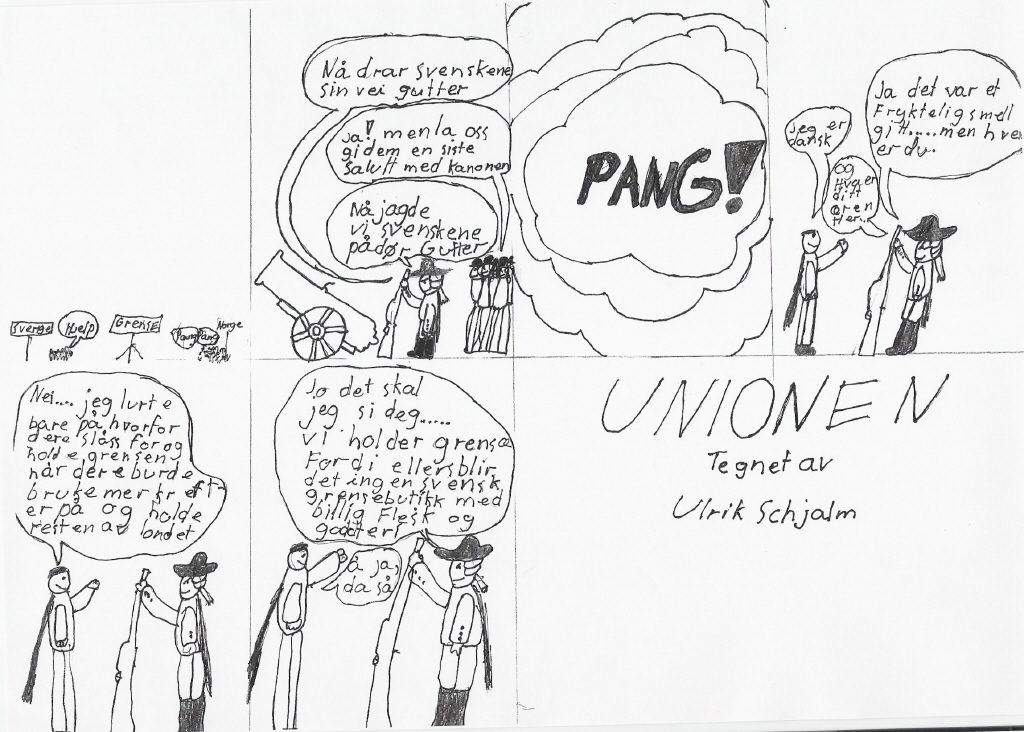 Sverge
Hjelp
Grense
PangPang
Norge
Nå drar svenskene
sin vei gutter
Ja! men la oss
gi dem en siste
salutt med kanonen
Nå jagde
vi svenskene
på dør Gutter
PANG!
Ja det var et
Frykteligsmell
gitt.....men
er du.
jeg er
dansk
Og
Hva er
ditt
Nei.... jeg lurte
bare på hvorfor
dere slåss for og
holde grensen
når dere burde
bruke mer kreft
er på og holde
resten av londet
Jo det skal
jeg si deg.....
vi holder grensa
Fordi ellersblir
det ingen svensk
grensebutikk med
billig Flesk og
godteri
Å ja,
da så
UNIONEN
Tegnet av
Ulrik Schjalm